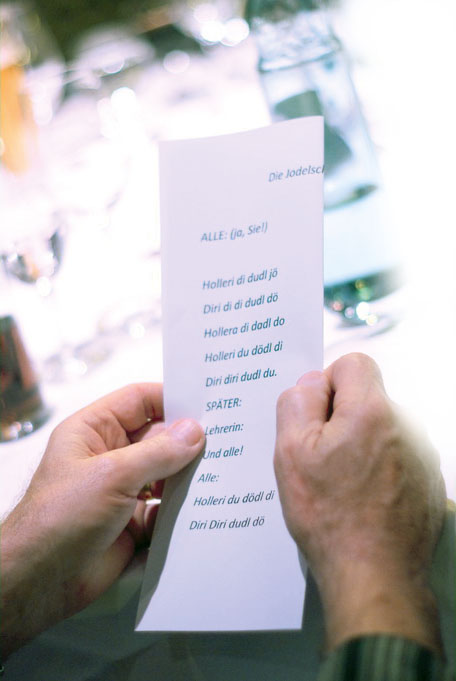 Die Jodelsc
ALLE: (ja, Sie!)
Holleri di dudl jö
Diri di di dudl dö
Hollera di dadl do
Holleri du dödl di
Diri diri dudl du.
SPÄTER:
Lehrerin:
Und alle!
Alle:
Holleri du dödl di
Diri Diri dudl dö